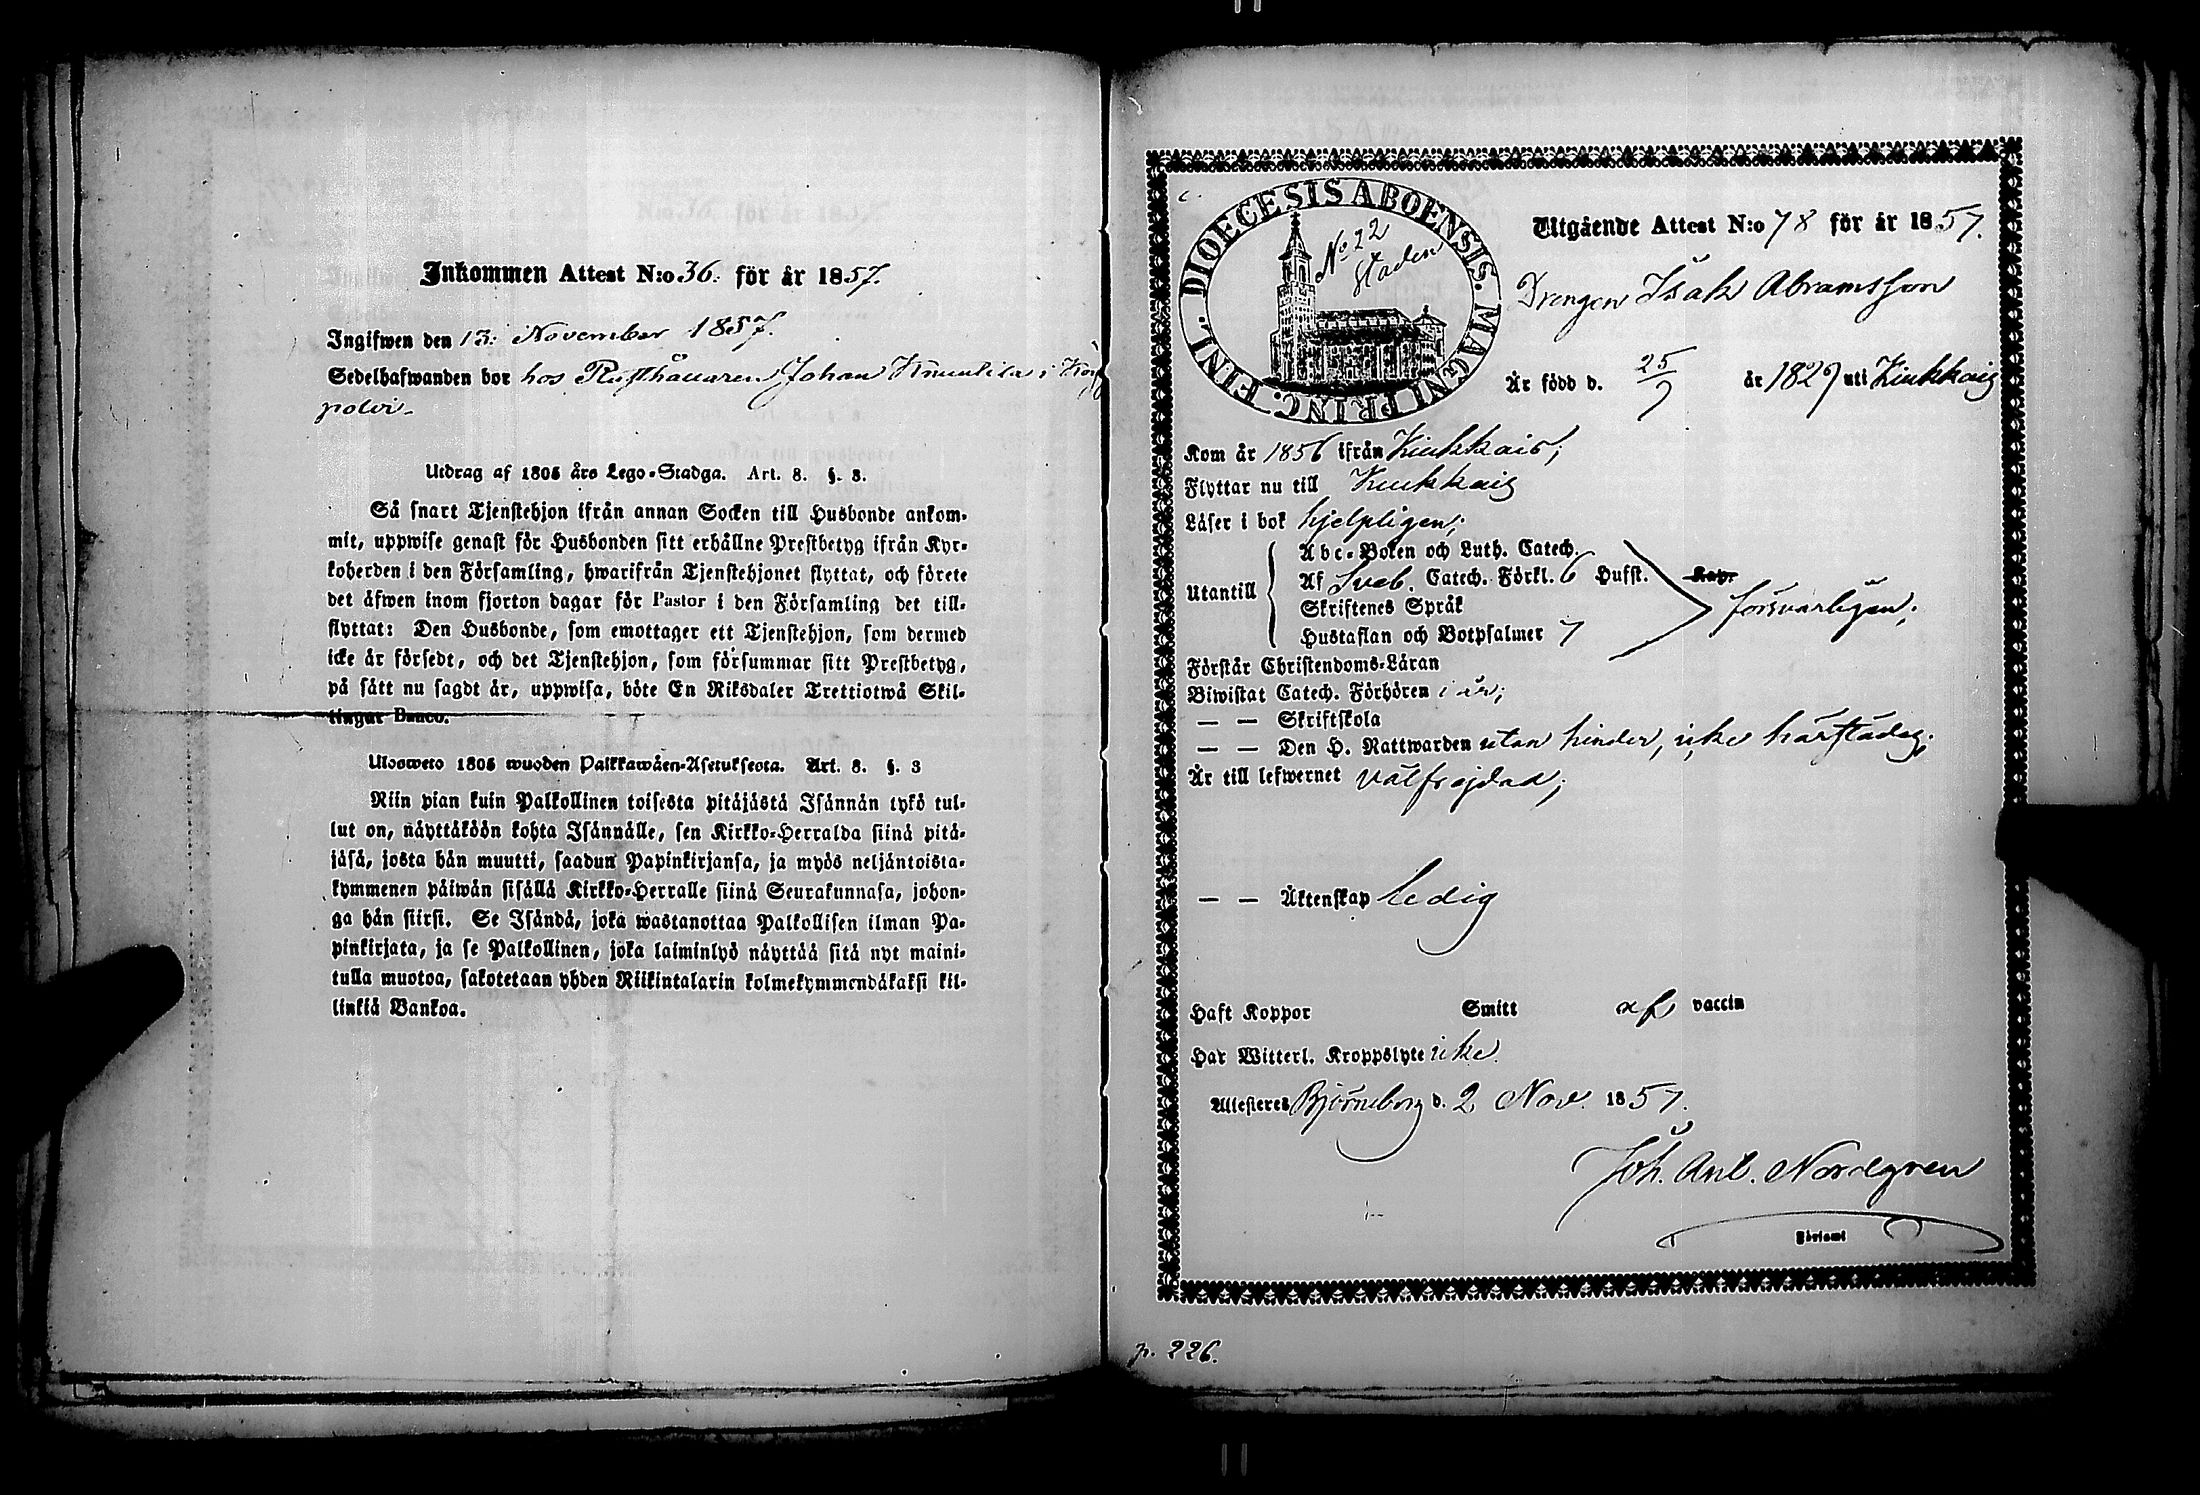 Inkommen Attest N:o 36. för år 1857.
Ingifwen den 13: November 1857.
Sedelhafwanden bor hos Rusthållaren Johan Knuutila i
polvi
Utdrag af 1805 års Lego-Stadga. Art. 8. §. 3.
Så snart Tjenstehjon ifrån annan Socken till Husbonde ankom-
mit, uppwise genast för Husbonden sitt erhållne Prestbetyg ifrån Kyr-
koherden i den Församling, hwarifrån Tjenstehjonet flyttat, och förete
det äfwen inom fjorton dagar för Pastor i den Församling det till-
flyttat: Den Husbonde, som emottager ett Tjenstehjon, som dermed
icke är försedt, och det Tjenstehjon, som försummar sitt Prestbetyg,
på sätt nu sagdt är, uppwisa, böte En Riksdaler Trettiotwå Skil-
lingar Banco.
Ulosweto 1805 wuoden Palkkawäen-Asetuksesta. Art. 8. §. 3
Niin pian kuin Palkollinen toisesta pitäjästä Isännän tykö tul-
lut on, näyttäköön kohta Isännälle, sen Kirkko-Herralda siinä pitä-
jäsä, josta hän muutti, saadun Papinkirjansa, ja myös neljäntoista-
kymmenen päiwän sisällä Kirkko-Herralle siinä Seurakunnasa, johon-
ga hän siirsi. Se Isändä, joka wastanottaa Palkollisen ilman Pa-
pinkirjata, ja se Palkollinen, joka laiminlyö näyttää sitä nyt maini-
tulla muotoa, sakotetaan yhden Riikintalarin kolmekymmendäkaksi kil-
linkiä Bankoa.
DIOECESIS ABOENSIS. MAGNI PRINC. FINL.
No 22
staden
Utgående Attest N:o 78 för år 1857.
Drengen Isak Abramsson
Är född d. 25/9 år 1829 uti Kiukkais
Kom år 1856 ifrån Kiukkais;
Flyttar nu till Kiukkais
Läser i bok hjelpligen;
Utantill
Abc-Boken och Luth. Catech.
Af Sveb. Catech. Förkl. 6 Hufst.
Skriftenes Språk
Hustaflan och Botpsalmer 7
försvarligen;
Förstår Christendoms-Läran
Biwistat Catech. Förhören i år;
— — Skriftskola
— — Den H. Nattwarden utan hinder, icke härstädes;
Är till lefwernet välfrejdad;
— — Äktenskap ledig
Haft Koppor Smitt af vaccin
Har Witterl. Kroppslyte icke.
Attesteres Björneborg d. 2 Nov. 1857.
Joh. Ant. Nordgren
p. 226.